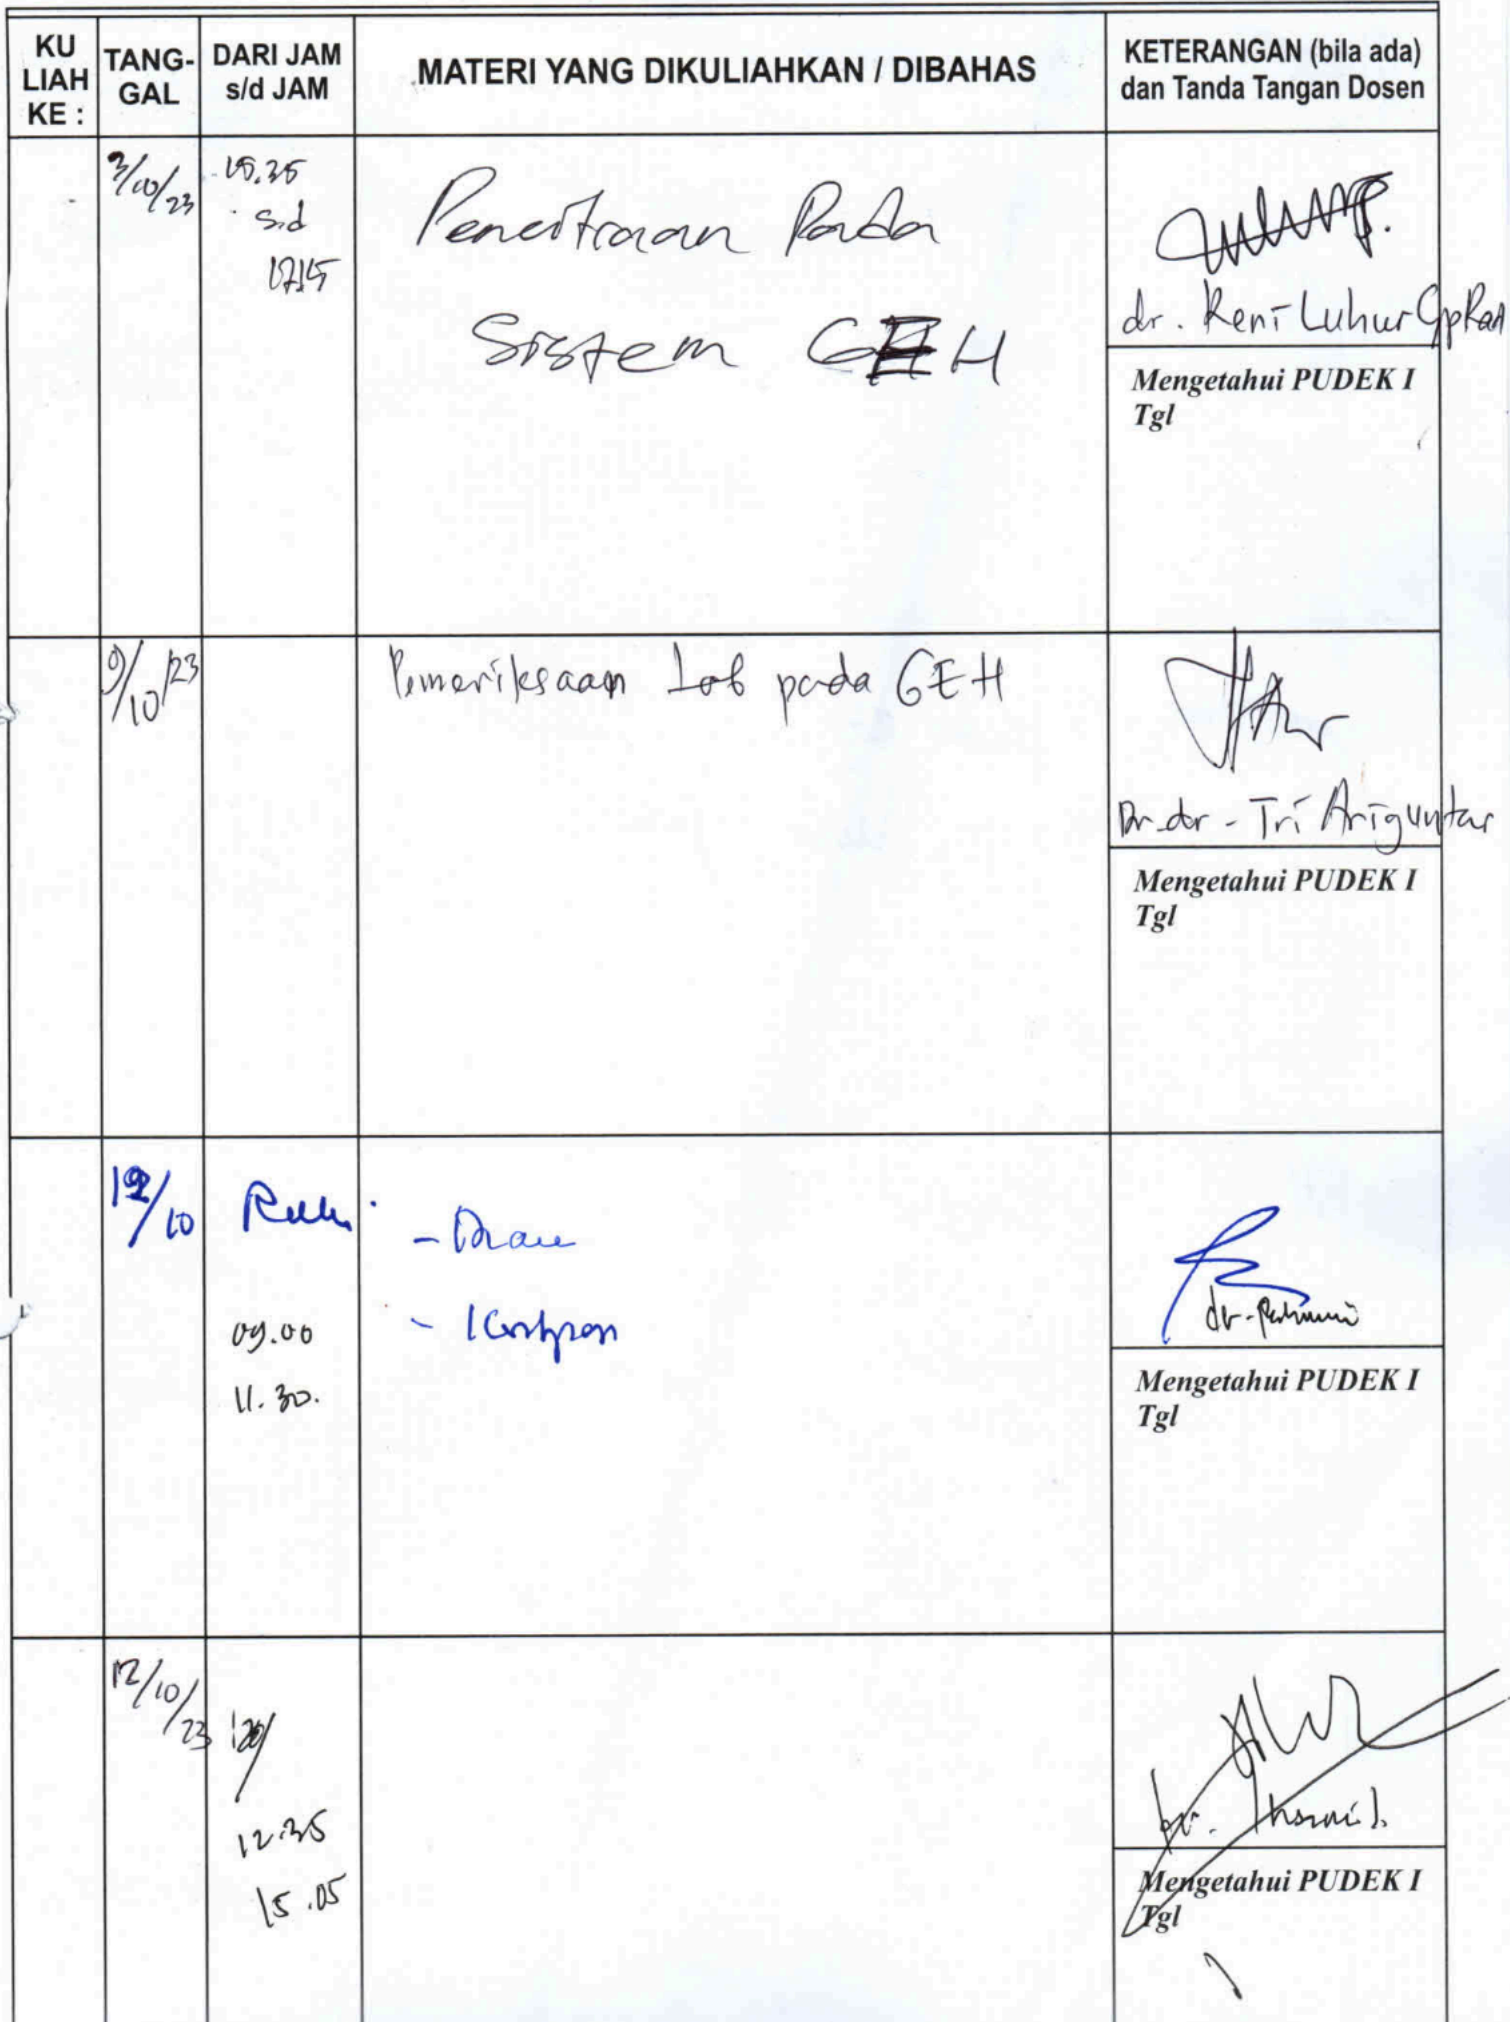 KU LIAH KE :
TANG-GAL
DARI JAM s/d JAM
MATERI YANG DIKULIAHKAN / DIBAHAS
KETERANGAN (bila ada) dan Tanda Tangan Dosen
3/10/23
15.35
s.d
17.15
Pencitraan Pada
Sistem GEH
dr. Reni Luhur SpRad
Mengetahui PUDEK I
Tgl
9/10/23
Pemeriksaan Lab pada GEH
Dr. dr - Tri Ariguntar
Mengetahui PUDEK I
Tgl
12/10
- Diare
09.00
11.30.
Mengetahui PUDEK I
Tgl
12/10/23
12.35
15.05
Mengetahui PUDEK I
Tgl